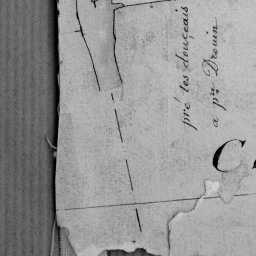 pré les douçeais
a p.re Drouin
C